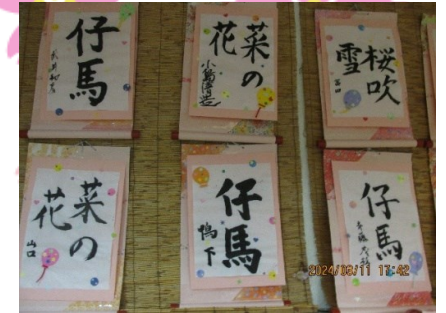 仔馬
菜の
花
桜吹
雪
菜の
花
山口
仔馬
鴨下
仔馬
2024/03/11 17:42